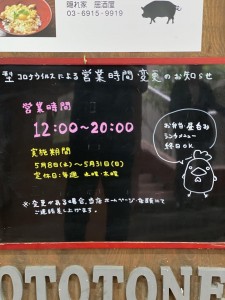 隠れ家 居酒屋
03-6915-9919
型コロナウイルスによる営業時間変更のお知らせ
営業時間
12:00〜20:00
実施期間
5月8日(水)〜5月31日(日)
定休日:毎週 火曜・木曜
お弁当・昼呑み
ランチメニュー
終日OK
※変更がある場合、当店ホームページ・店頭にて
ご連絡差し上げます。
OTOTONE